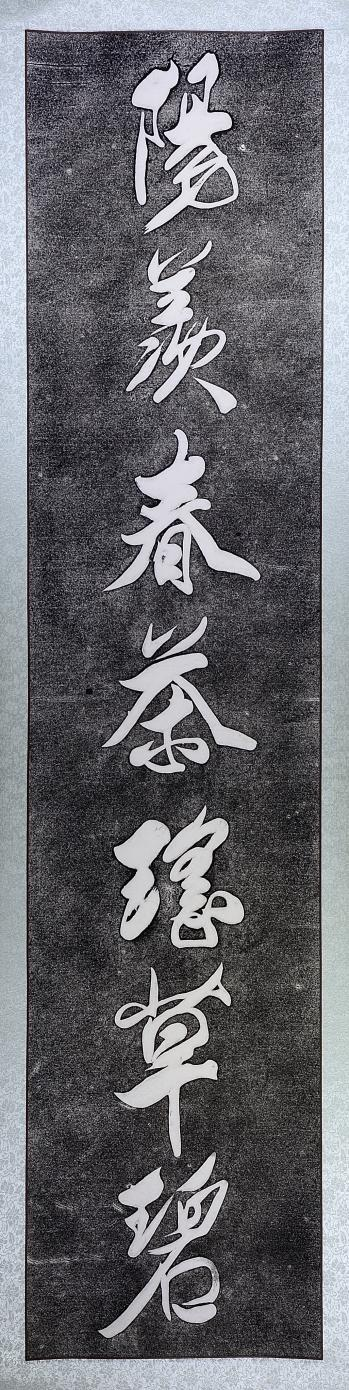 陽羨春茶瑤草碧